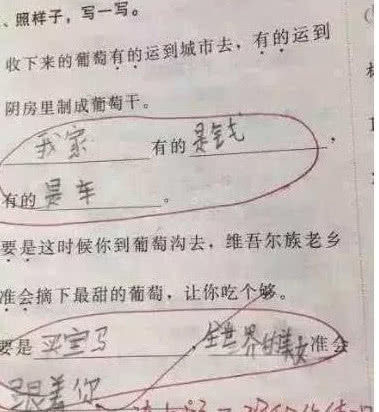 、照样子，写一写。
收下来的葡萄有的运到城市去，有的运到
阴房里制成葡萄干。
我家有的是钱，
有的是车。
要是这时候你到葡萄沟去，维吾尔族老乡
准会摘下最甜的葡萄，让你吃个够。
要是买宝马，全世界的美女准会
跟着你